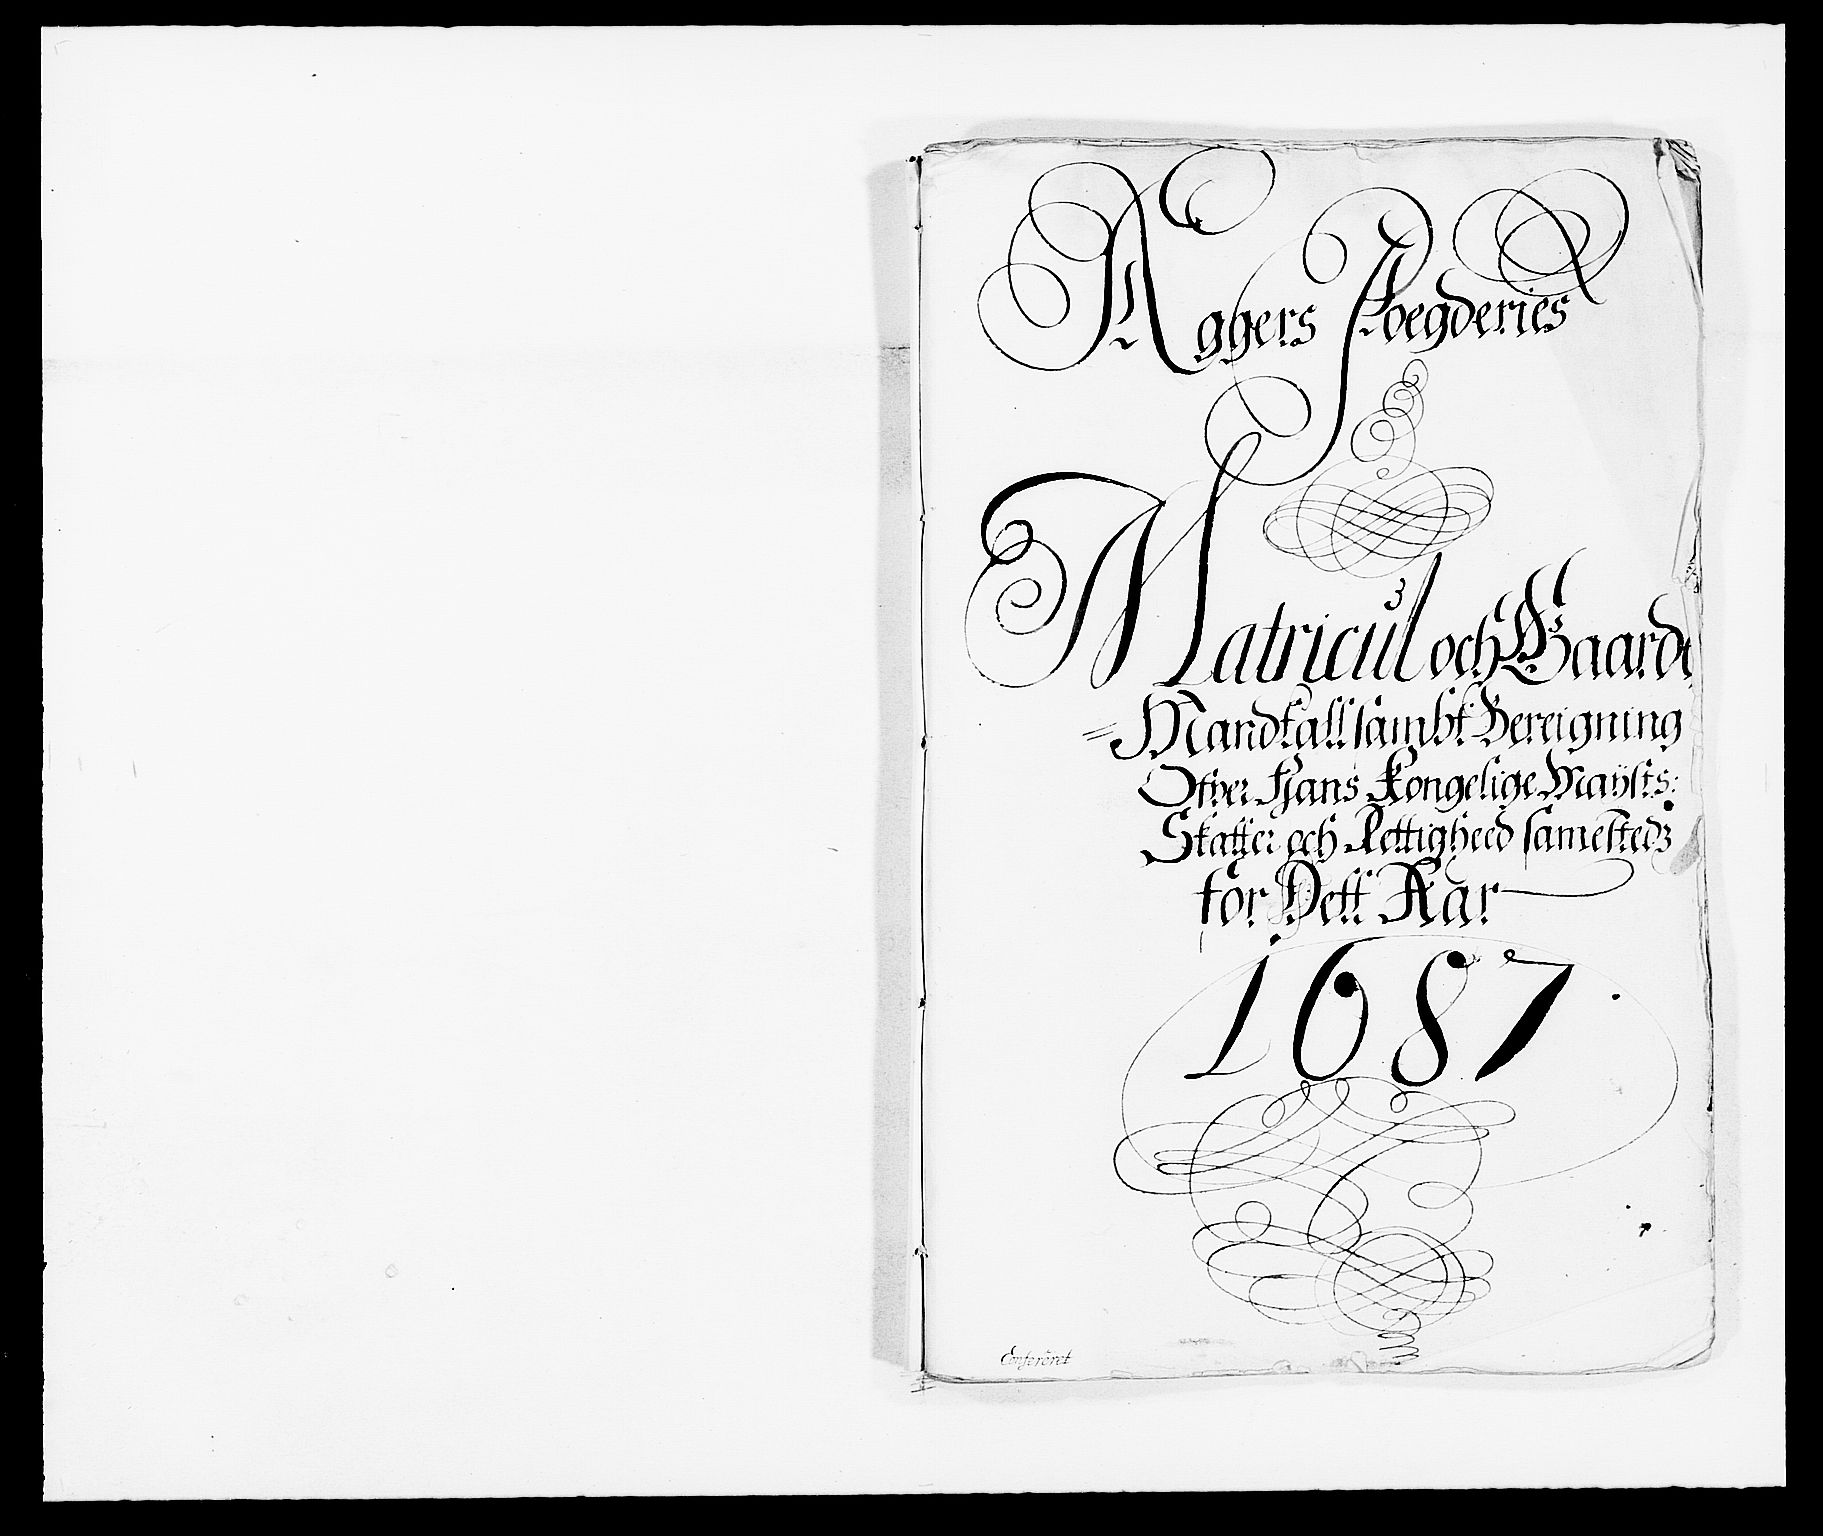 Aggers Foegderies
Matricul och Gaarde
=Mandtall sambt Bereigning
Ofver Hans Kongelige Maÿsts:
Skatter och Rettigheed samestedz
for Dett Aar
1687
Confereret